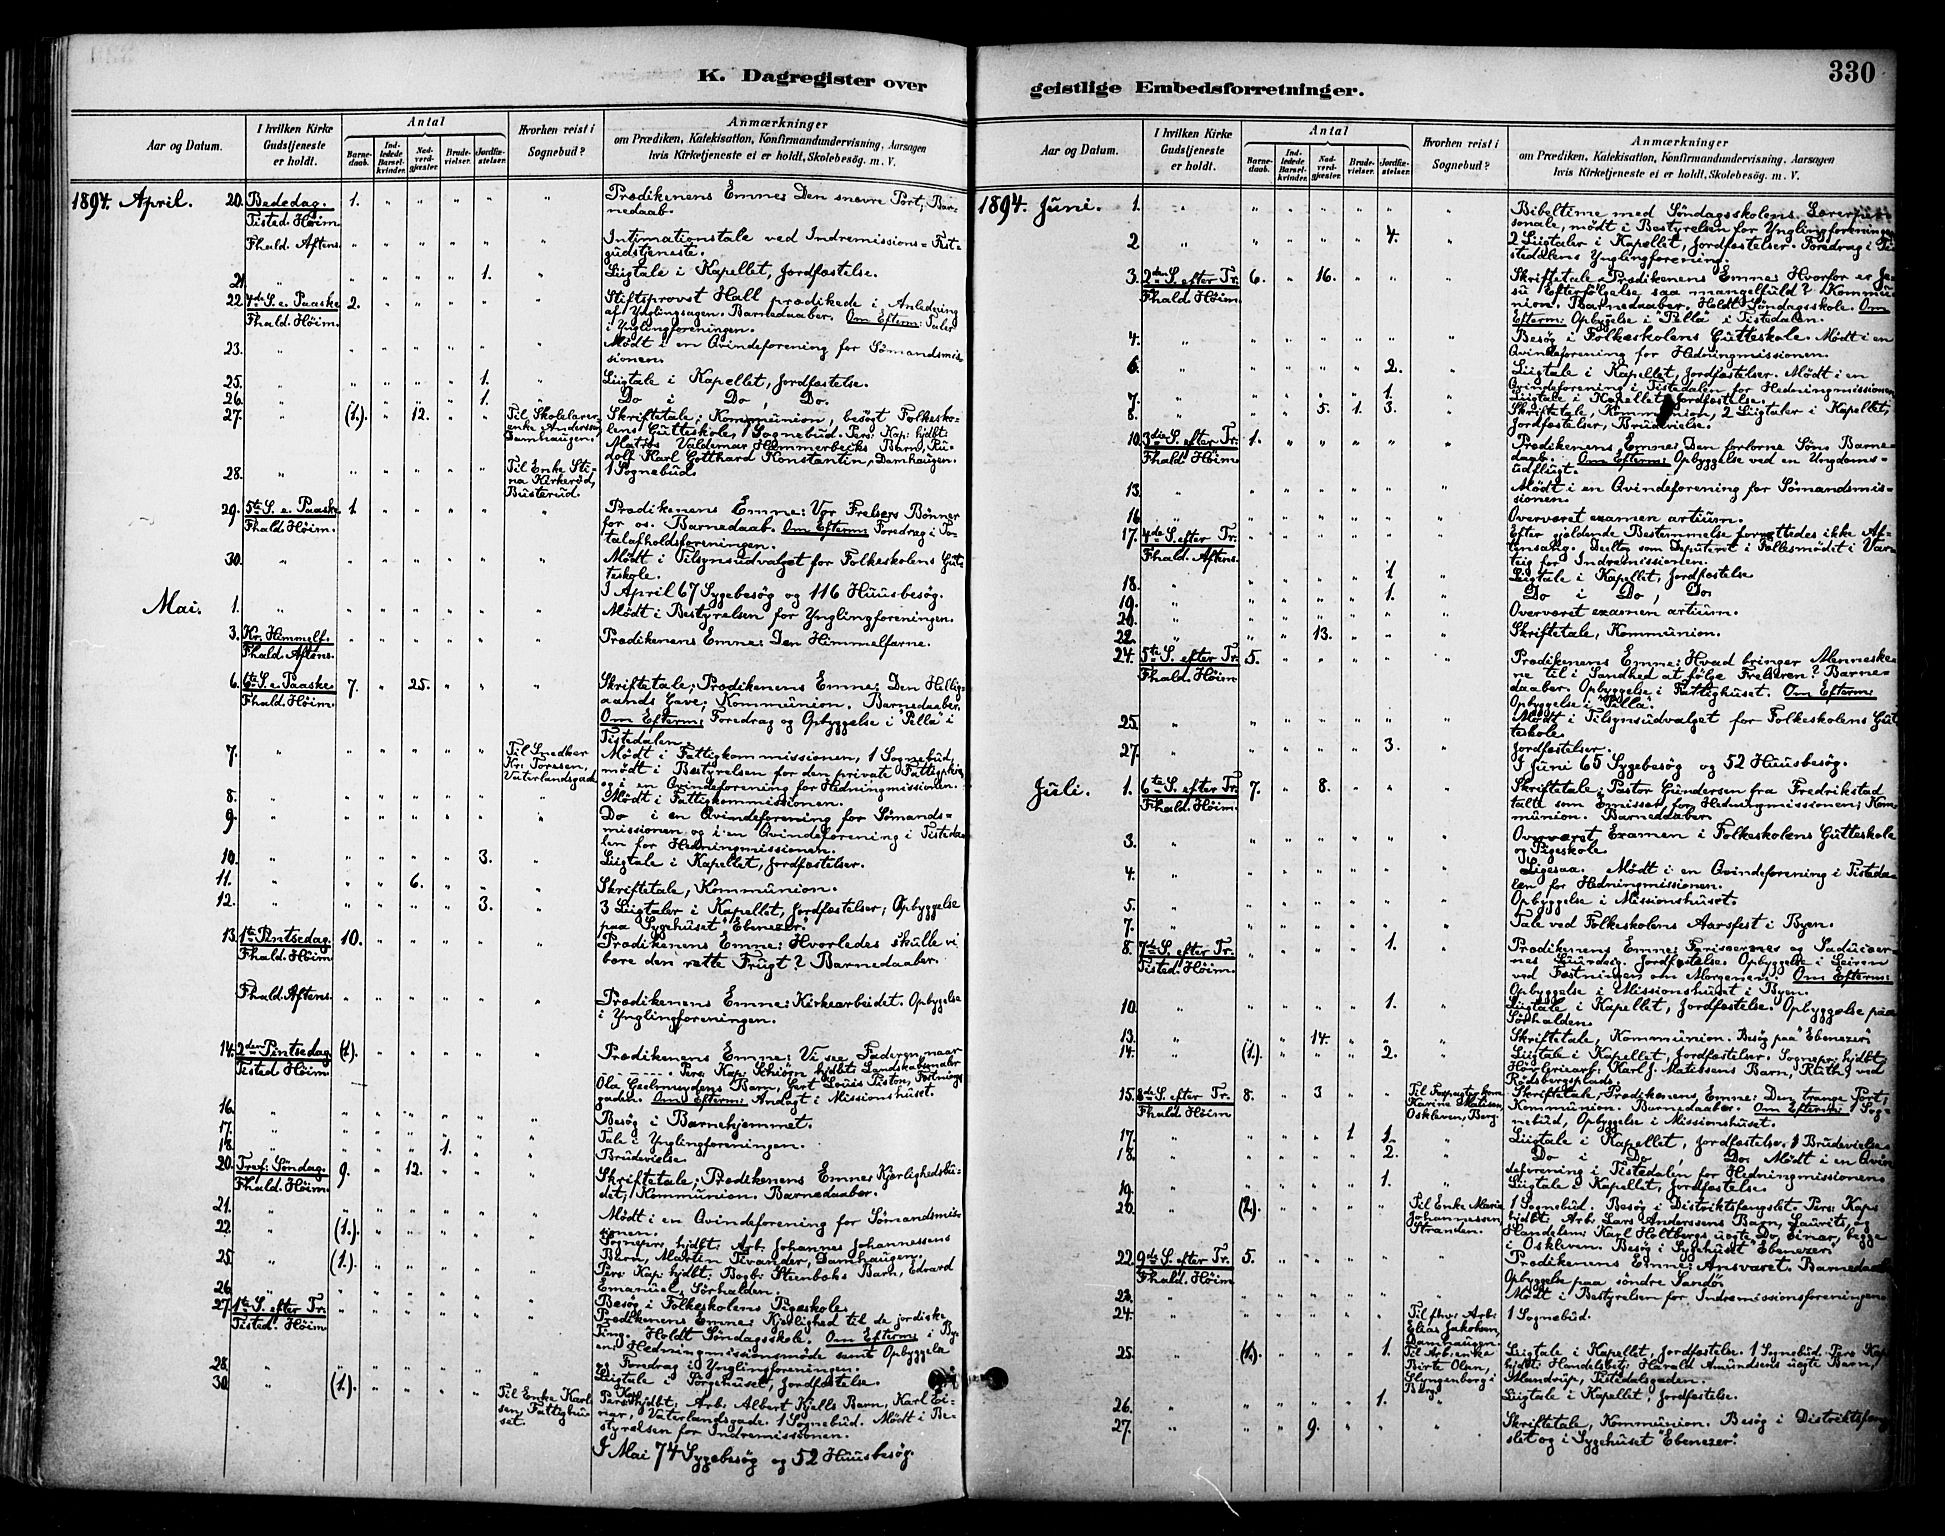 330
K. Dagregister over
geistlige Embedsforretninger.
Aar og Datum.
I hvilken Kirke Gudstjeneste er holdt.
Antal
Barnedaab.
Indledede Barselkvinder.
Nadverdgjester.
Brudevielser.
Jordfæstelser.
Hvorhen reist i Sognebud?
Anmærkninger
om Prædiken, Katekisation, Konfirmandundervisning, Aarsagen
hvis Kirketjeneste ei er holdt, Skolebesøg. m. V.
1894. April. 20. Bededag. 1. Prædikenens Emne: Den snevre Port; Bar-
Tisted. Höim. nedaab.
Fhald. Aftens. Intimationstale ved Indremissions-Fest-
gudstjeneste.
21. 1. Liigtale i Kapellet, Jordfæstelse.
22. 4de S. e. Paaske 2. Stiftsprovst Hall prædikede i Anledning
Fhald. Höim. af Ynglingsagen. Barnedaaber. Om Efterm: Taler
i Ynglingforeningen.
23. Mødt i en Qvindeforening for Sømandsmis-
sionen.
25. 1. Liigtale i Kapellet, Jordfæstelse.
26. 1. Do i Do, Do.
27. (1.) 12. Til Skolelærer- Skriftetale; Kommunion, besøgt Folkesko-
enke Anderssen, lens Gutteskole, 1 Sognebud. Pers: Kap: hjdbt:
Damhaugen. Matros Valdemar Hammerbecks Barn, Ru-
dolf Karl Gotthard Konstantin, Damhaugen.
28. Til Enke Sti- 1 Sognebud.
na Kirkerød,
Busterud.
29. 5te S. e. Paaske 1 Prædikenens Emne: Vor Frelsers Bønner
Fhald. Höim. for os. Barnedaab. Om Efterm: Foredrag i To-
talafholdsforeningen.
30. Mødt i Tilsynsudvalget for Folkeskolens Gut-
teskole.
I April 67 Sygebesøg og 116 Huusbesøg.
Mai. 1. Mødt i Bestyrelsen for Ynglingforeningen.
3. Kr. Himmelf. Prædikenens Emne: Den Himmelfarne.
Fhald. Aftens.
6. 6te S. e. Paaske 7. 25. Skriftetale; Prædikenens Emne: Den Hellig-
Fhald. Höim. aands Gave; Kommunion. Barnedaaber.
Om Efterm: Foredrag og Opbyggelse i "Pella" i
Tistedalen.
7. Til Snedker Mødt i Fattigkommissionen, 1 Sognebud,
Kr. Toresen, mødt i Bestyrelsen for den private Fattigpleie
Vaterlandsgade og i en Qvindeforening for Hedningmissionen.
8. Mødt i Fattigkommissionen.
9. Do i en Qvindeforening for Sømands-
missionen og i en Qvindeforening i Tisteda-
len for Hedningmissionen.
10. 3. Liigtale i Kapellet, Jordfæstelser.
11. 6. Skriftetale, Kommunion.
12. 3. 3 Liigtaler i Kapellet, Jordfæstelser; Opbyggelse
paa Sygehuset "Ebenezer".
13. 1ste Pintsedag. 10. Prædikenens Emne: Hvorledes skulle vi
Fhald. Höim. bære den rette Frugt? Barnedaaber.
Fhald. Aftens. Prædikenens Emne: Kirkearbeidet. Opbyggelse
i Ynglingforeningen.
14. 2den Pintsedag (1). Prædikenens Emne: Vi see Faderen, naar
Tisted Höim. - - - - . Pers: Kap: Schiörn hjdbt: Landskabsmaler
Ola Geelmuydens Barn, Gert Louis Piston, Fæstnings
gaden. Om Efterm: Andagt i Missionshuset.
16. Besøg i Barnehjemmet.
17. Tale i Ynglingforeningen.
18. 1. Brudevielse.
20. Tref: Søndag. 9. 12. Skriftetale; Prædikenens Emne: Kjærlighedsbu-
Fhald. Höim. det; Kommunion. Barnedaaber.
21. Mødt i en Qvindeforening for Sømandsmis-
sionen.
22. (1.) Sognepr: hjdbt: Arb. Johannes Johannessens
Barn, Martin Tivander, Damhaugen.
25. (1.) Pers: Kap: hjdbt: Bogb: Steenboks Barn, Edvard
Emanuel, Sørhalden.
26. Besøg i Folkeskolens Pigeskole.
27. 1ste S. efter Tr. Prædikenens Emne: Kjærlighed til de jordiske
Tisted. Höim. Ting. Holdt Søndagsskole. Om Efterm: i By-
en Hedningmissionsmøde samt Opbyggelse
og Foredrag i Ynglingforeningen.
28. Liigtale i Sørgehuset, Jordfæstelse.
30. (1.) Til Enke Karl- Pers: Kap: hjdbt: Arb. Albert Kjells Barn, Karl Ei-
sen, Fattighu- nar, Vaterlandsgade. 1 Sognebud. Mødt i Be-
set. styrelsen for Indremissionen.
I Mai 74 Sygebesøg og 52 Huusbesøg.
Aar og Datum.
I hvilken Kirke Gudstjeneste er holdt.
Antal
Barnedaab.
Indledede Barselkvinder.
Nadverdgjester.
Brudevielser.
Jordfæstelser.
Hvorhen reist i Sognebud?
Anmærkninger
om Prædiken, Katekisation, Konfirmandundervisning, Aarsagen
hvis Kirketjeneste ei er holdt, Skolebesøg. m. V.
1894. Juni. 1. Bibeltime med Søndagsskolens Lærerper-
sonale, mødt i Bestyrelsen for Ynglingforeningen.
2. 4. 2 Liigtaler i Kapellet, Jordfæstelser. Foredrag i Ti-
stedalens Ynglingforening.
3. 2den S. efter Tr. 6. 16. Skriftetale; Prædikenens Emne: Hvorfor er Je-
Fhald. Höim. su Efterfølgelse saa mangelfuld? Kommu-
nion. Barnedaaber. Holdt Søndagsskole. Om
Efterm: Opbyggelse i "Pella" i Tistedalen.
4. Besøg i Folkeskolens Gutteskole. Mødt i en
Qvindeforening for Hedningmissionen.
6. 2. Liigtale i Kapellet, Jordfæstelser. Mødt i en
Qvindeforening i Tistedalen for Hedningmissionen.
7. 1. Liigtale i Kapellet, Jordfæstelse.
8. 5. 1. 3. Skriftetale, Kommunion, 2 Liigtaler i Kapellet,
Jordfæstelser, Brudevielse.
10. 3die S. efter Tr. 1. Prædikenens Emne: Den forlorne Søn. Barne-
Fhald. Höim. daab. Om Efterm: Opbyggelse ved en Ungdoms-
udflugt.
13. Mødt i en Qvindeforening for Sømandsmis-
sionen.
16. Overværet examen artium.
17. 4de S. efter Tr. Efter gjældende Bestemmelse forrettedes ikke Af-
Fhald. Aftens. tensang. Deeltog som Deputeret i Fællesmødet i Var-
teig for Indremissionen.
18. 1 Liigtale i Kapellet, Jordfæstelse
19. 1. Do i Do, Do.
20. Overværet examen artium.
22. 13. Skriftetale, Kommunion.
24. 5te S. efter Tr. 5. Prædikenens Emne: Hvad bringer Menneske-
Fhald. Höim. ne til i Sandhed at følge Frelseren? Barne-
daaber. Opbyggelse i Fattighuset. Om Efterm:
Opbyggelse i "Pella".
25. Mødt i Tilsynsudvalget for Folkeskolens Gut-
teskole.
27. 3. Jordfæstelser.
I Juni 65 Sygebesøg og 52 Huusbesøg.
Juli. 1. 6te S. efter Tr. 7. 8. Skriftetale; Pastor Gundersen fra Fredrikstad
Fhald. Höim. talte som Emissær for Hedningmissionen; Kom-
munion. Barnedaaber.
3. Overværet Examen i Folkeskolens Gutteskole
og Pigeskole.
4. Ligesaa. Mødt i en Qvindeforening i Tisteda-
len for Hedningmissionen.
5. Opbyggelse i Missionshuset.
7. Tale ved Folkeskolens Aarsfest i Byen.
8. 7de S. efter Tr. 1. Prædikenens Emne: Farisæernes og Saducæer-
Tisted. Höim. nes Suurdeig. Jordfæstelse. Opbyggelse i Leiren
ved Fæstningen om Morgenen. Om Efterm:
Opbyggelse i Missionshuset i Byen.
10. 1. Liigtale i Kapellet, Jordfæstelse. Opbyggelse paa
Sørhalden.
13. 14. Skriftetale, Kommunion. Besøg paa "Ebenezer".
14. (1.) 2. Liigtale i Kapellet, Jordfæstelser. Sognepr: hjdbt:
Karl J. Matissens Barn, Ruth, ved
Rødsbergsplads.
15. 8de S. efter Tr. 8. 3 Karine Matisen, Skriftetale, Prædikenens Emne: Den trange Port;
Fhald. Höim Oskleven, Berg. Kommunion. Barnedaaber. Om Efterm: 1 Sog-
nebud, Opbyggelse i Missionshuset.
17. 1 1. Liigtale i Kapellet, Jordfæstelse. 1 Brudevielse.
18. 2. Do i Do, Do. Mødt i en Qvin-
deforening i Tistedalen for Hedningmissionen.
19. 1. Liigtale i Kapellet, Jordfæstelse.
20. (2.) Til Enke Marie 1 Sognebud. Besøg i Distriktsfængslet. Pers: Kap:
Johannessen, hjdbt: Arb. Lars Anderssens Barn, Laurits, og
Stranden. Handelsm: Karl Holtbergs uægte Do, Einar, begge
i Oskleven. Besøg i Sygehuset "Ebenezer".
22. 9de S. efter Tr. 5. Prædikenens Emne: Ansvaret. Barnedaab.
Fhald. Höim. Opbyggelse paa søndre Sandø.
23. Mødt i Bestyrelsen for Indremissionsforeningen.
24. Til fhv: Arb: 1 Sognebud.
Elias Jakobsen,
Damhaugen.
25. (1.) 1. Til Arb.enke Liigtale i Kapellet, Jordfæstelse. 1 Sognebud. Pers: Kap:
Birte Olsen, hjdbt: Handelsbet: Harald Amundsens uægte Barn,
Slyngenborg i Mandrup, Tistedalsgaden.
Berg.
26. 1. Liigtale i Kapellet, Jordfæstelse.
27. 9. Skriftetale, Kommunion. Besøg i Distriktsfæng-
slet og i Sygehuset "Ebenezer".